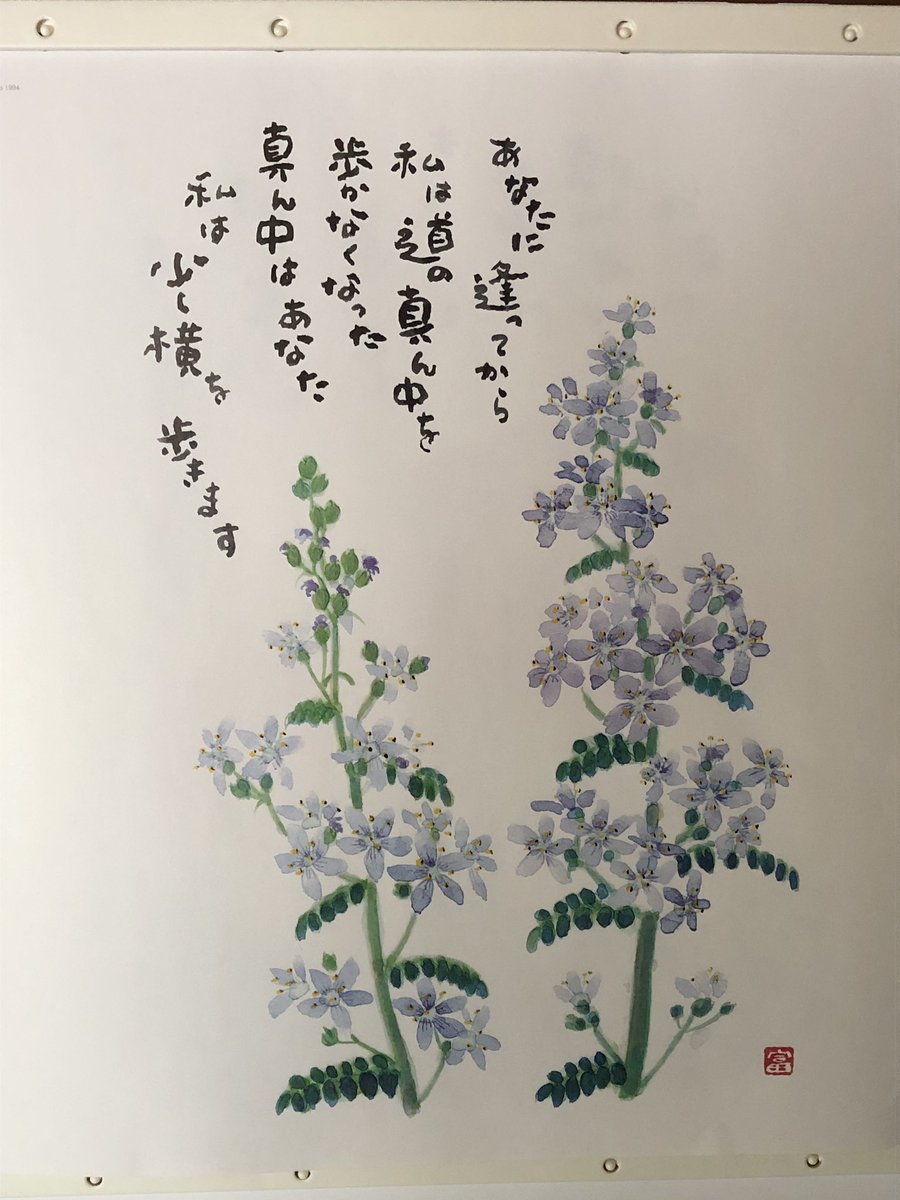 あなたに逢ってから
私は道の真ん中を
歩かなくなった
真ん中はあなた
私は少し横を歩きます
富
1994